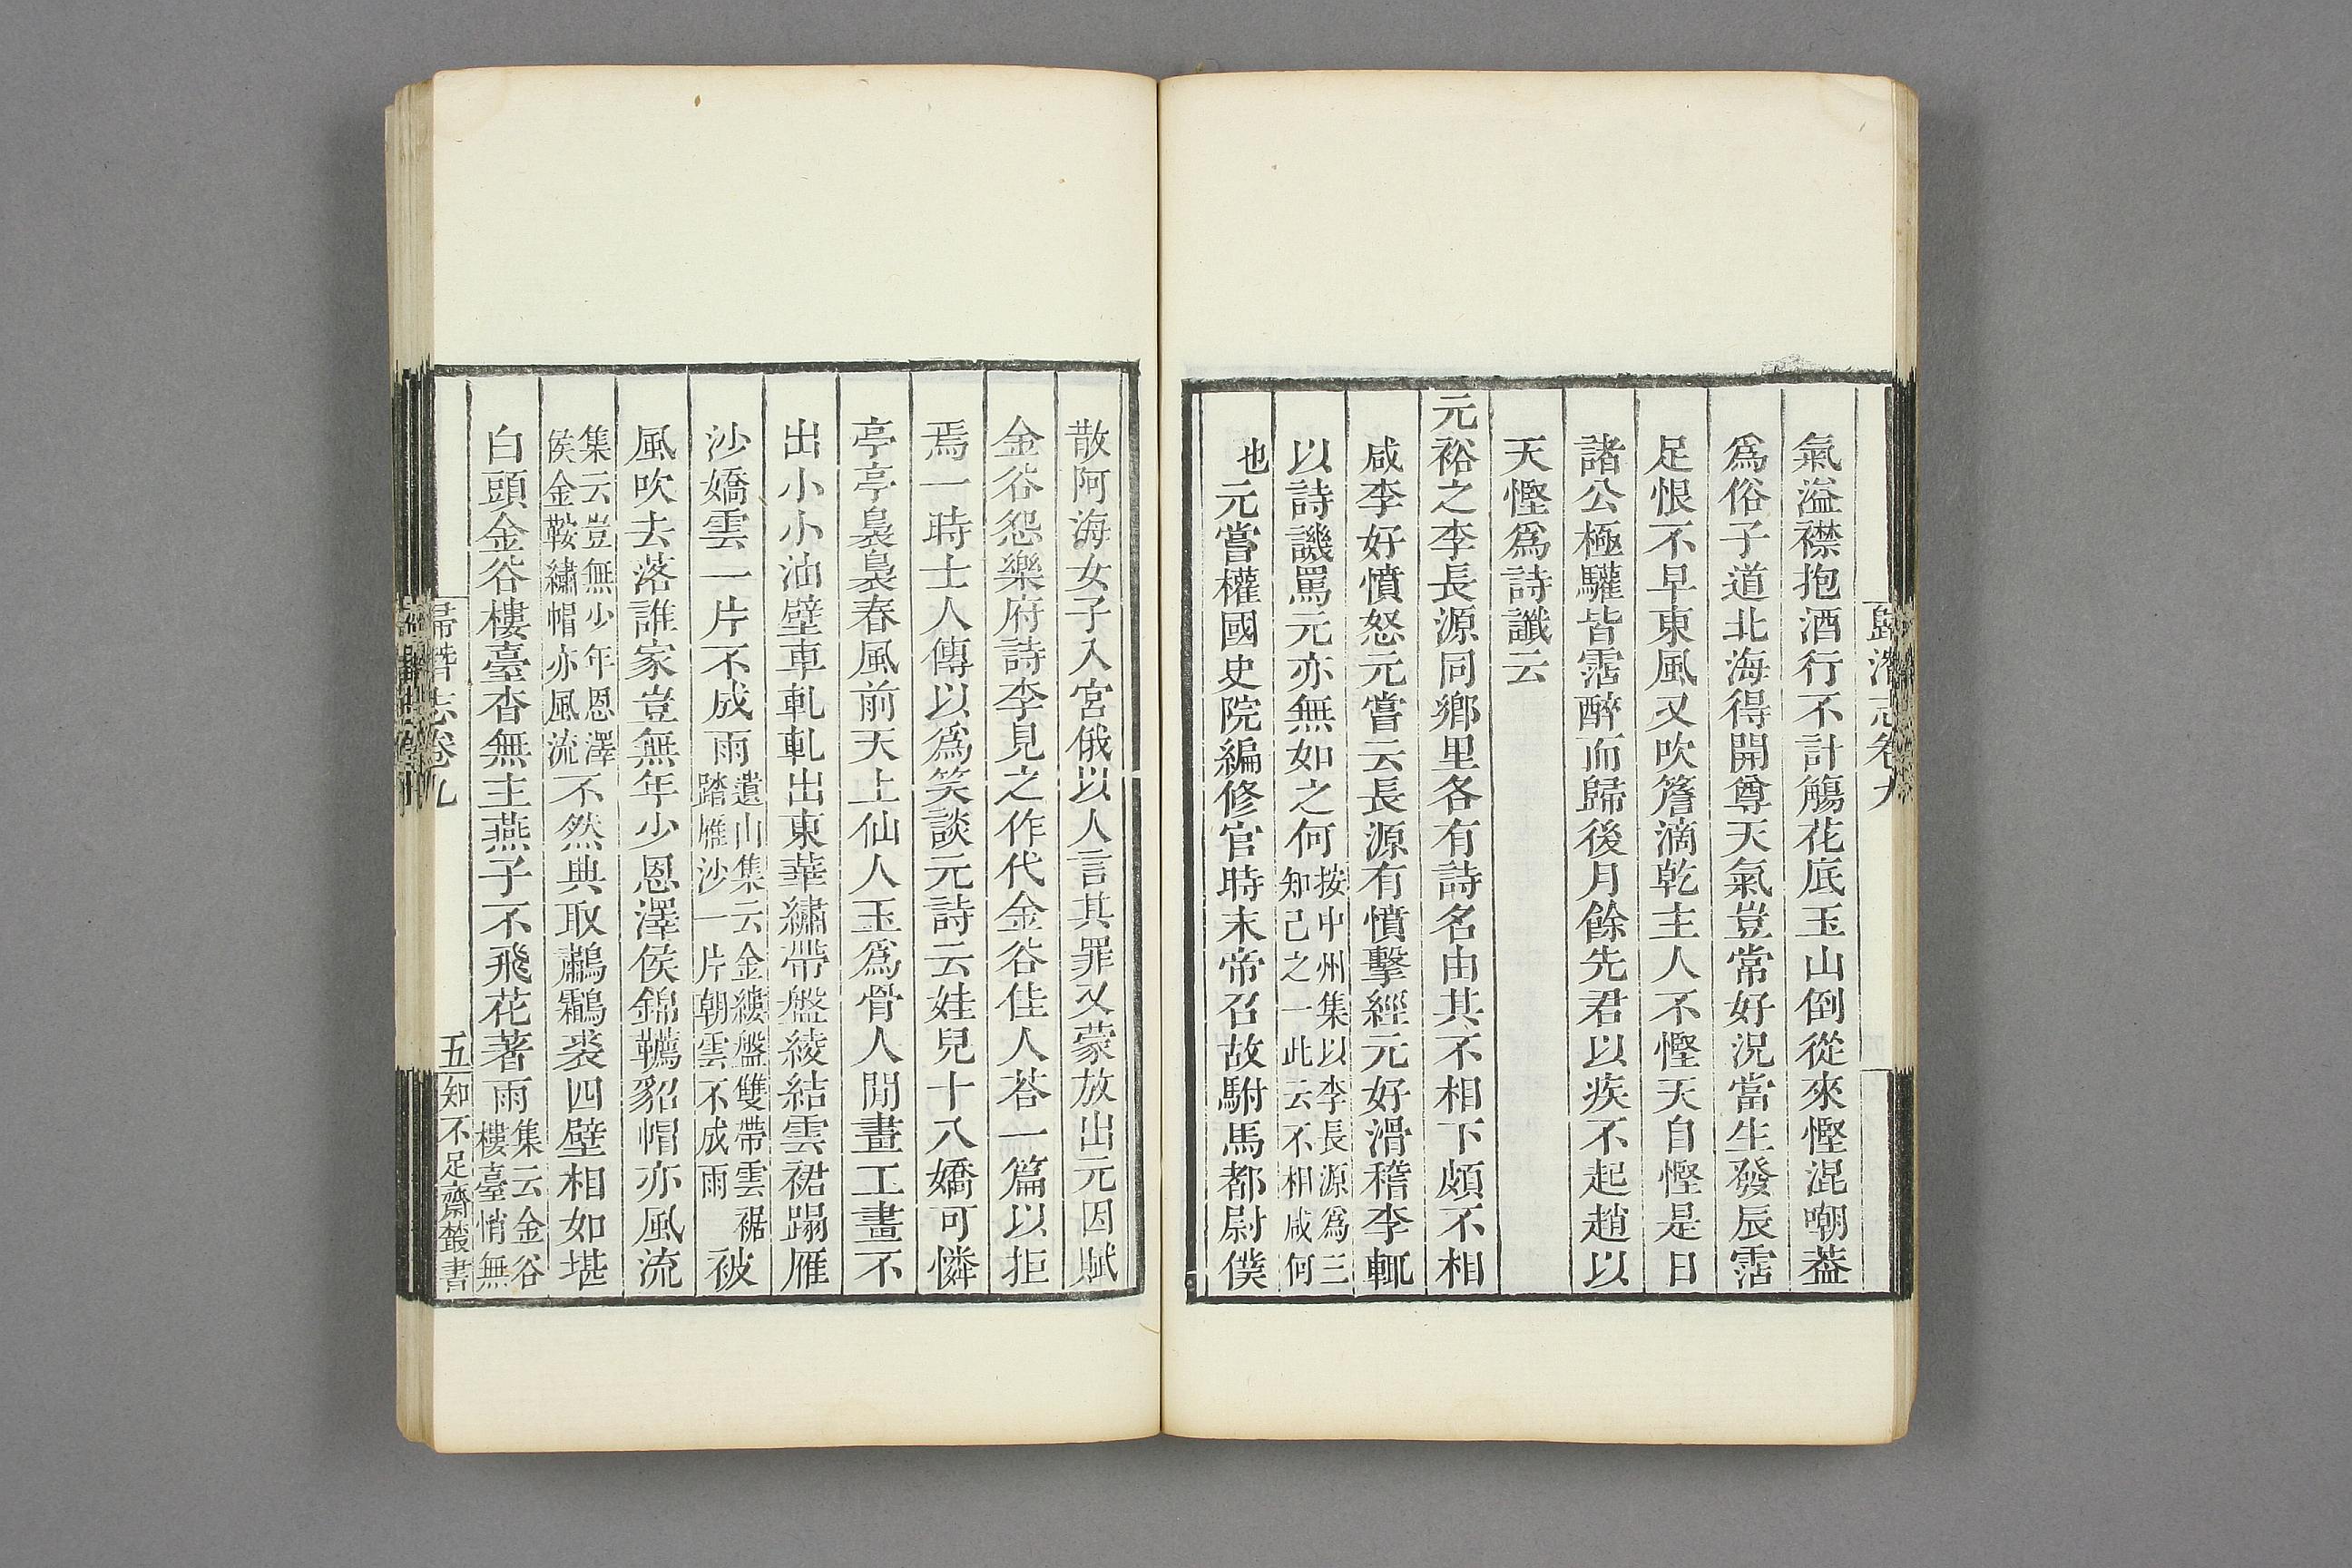 歸潛志卷九
氣溢襟抱酒行不計觴花底玉山倒從來慳混嘲葢
爲俗子道北海得開尊天氣豈常好況當生發辰霑
足恨不早東風又吹簷滴乾主人不慳天自慳是日
諸公極驩皆霑醉而歸後月餘先君以疾不起趙以
天慳爲詩讖云
元裕之李長源同鄉里各有詩名由其不相下頗不相
咸李好憤怒元嘗云長源有憤擊經元好滑稽李輒
以詩譏罵元亦無如之何按中州集以李長源爲三
知己之一此云不相咸何
也元嘗權國史院編修官時末帝召故駙馬都尉僕
散阿海女子入宮俄以人言其罪又蒙放出元因賦
金谷怨樂府詩李見之作代金谷佳人荅一篇以拒
焉一時士人傳以爲笑談元詩云娃兒十八嬌可憐
亭亭裊裊春風前天上仙人玉爲骨人閒畫工畫不
出小小油壁車軋軋出東華繡帶盤綾結雲裙踢雁
沙嬌雲一片不成雨遺山集云金縷盤雙帶雲裾
踏雁沙一片朝雲不成雨
被
風吹去落誰家豈無年少恩澤侯錦韉貂帽亦風流
集云豈無少年恩澤
侯金鞍繡帽亦風流
不然典取鷫鸘裘四壁相如堪
白頭金谷樓臺杳無主燕子不飛花著雨集云金谷
樓臺悄無
歸潛志卷九
五
知不足齋叢書